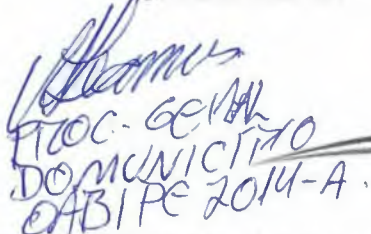 PROC. GERAL
DO MUNICÍPIO
OAB/PE 2014-A.